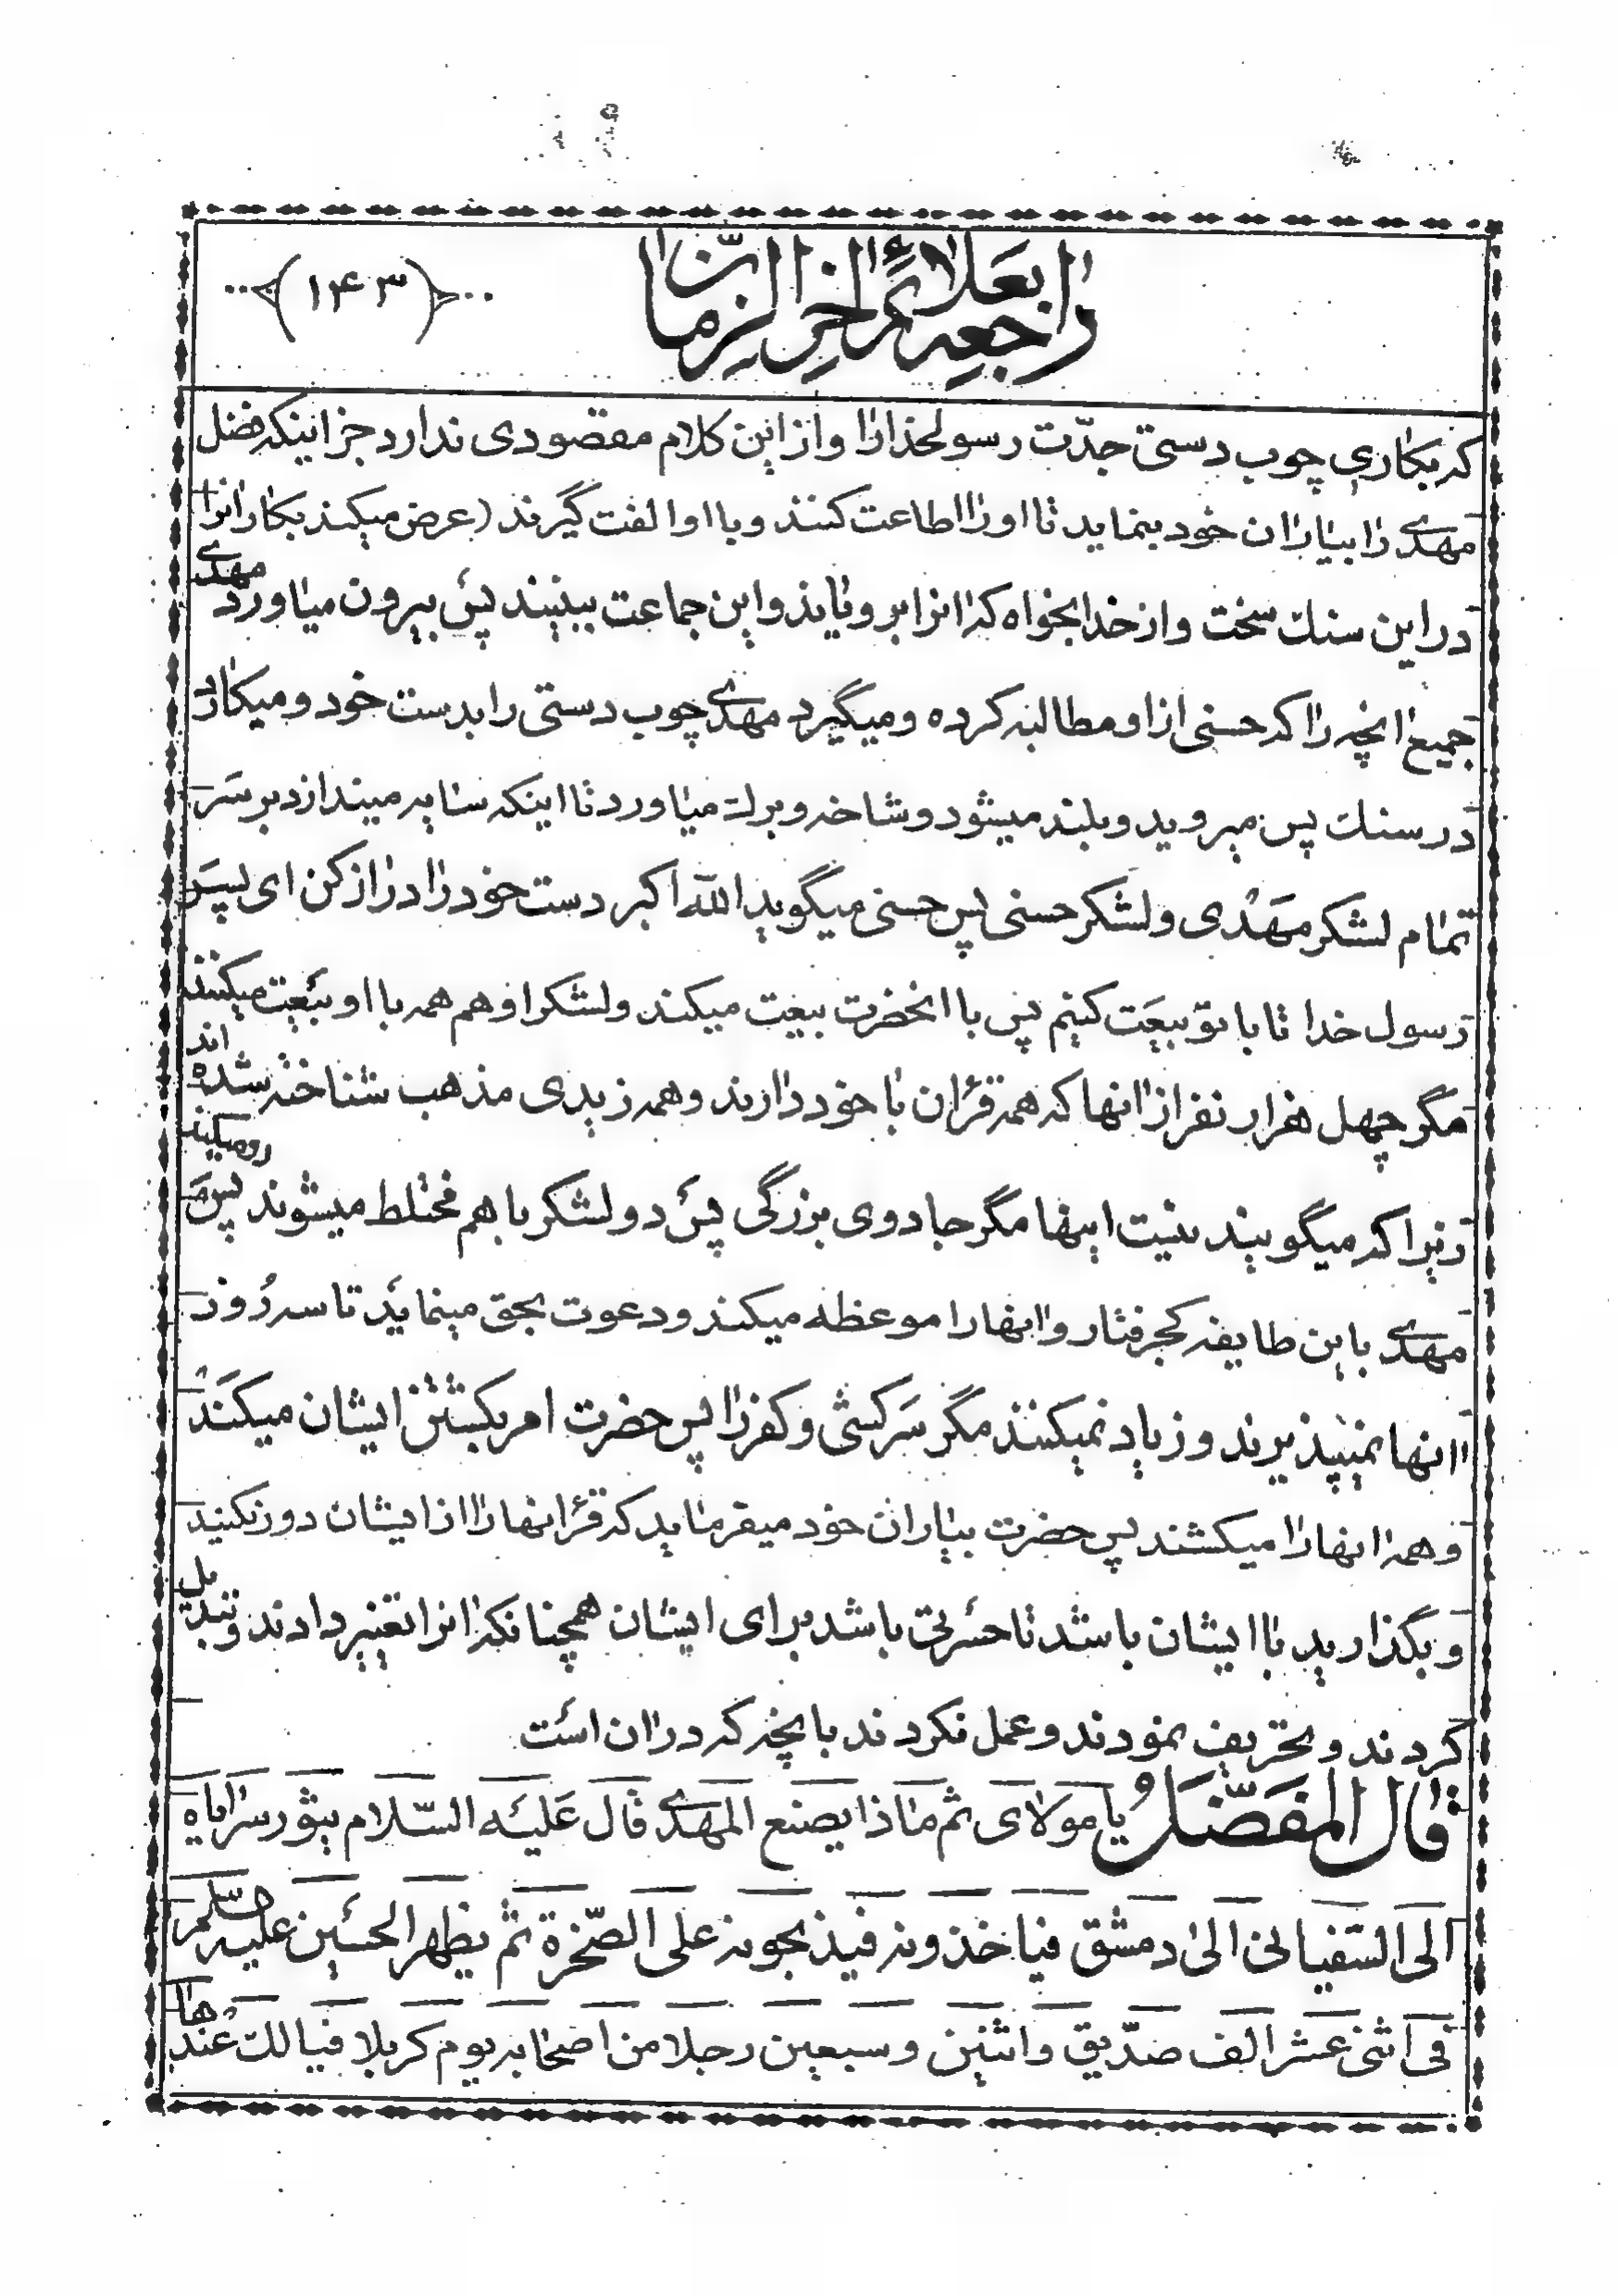 راجعه بعلائم اخر الزمان
(۱۴۳)
که بکاری چوب دستی جدّت رسولخدا را و از این کلام مقصودی ندارد جز اینکه فضل
مهدی را بیاران خود بنماید تا او را اطاعت کنند و با او الفت گیرند (عرض میکند بکار انرا
در این سنك سخت و از خدا بخواه که انرا برویاند و این جماعت ببینند پس بیرون میاورد مهدی
جمیع انچه را که حسنی از او مطالبه کرده و میگیرد مهدی چوب دستی را بدست خود و میکارد
در سنك پس میروید و بلند میشود و شاخه و برك میاورد تا اینکه سایه میندازد بر سر
تمام لشکر مهدی و لشکر حسنی پس حسنی میگوید الله اکبر دست خود را دراز کن ای پسر
رسول خدا تا با تو بیعت کنیم پس با انحضرت بیعت میکند و لشکر او هم همه با او بیعت میکنند
مگر چهل هزار نفر از انها که همه قرءان با خود دارند و همه زیدی مذهب شناخته شده اند
زیرا که میگویند نیست اینها مگر جادوی بزرگی پس دو لشکر با هم مختلط میشوند پس رو میکند
مهدی باین طایفه کجرفتار و انها را موعظه میکند و دعوت بحق مینماید تا سه روز
انها نمیپذیرند و زیاد نمیکنند مگر سرکشی و کفر را پس حضرت امر بکشتن ایشان میکند
و همه انها را میکشند پس حضرت بیاران خود میفرماید که قرءانها را از ایشان دور نکنید
و بگذارید با ایشان باشد تا حسرتی باشد برای ایشان همچنانکه انرا تغییر دادند و تبدیل
کردند و تحریف نمودند و عمل نکردند بانچه که در ان است
قال المفضّل یا مولای ثم ماذا یصنع المهدی قال علیه السّلام یثور سرایاه
الی السّفیانی الی دمشق فیاخذونه فیذبحونه علی الصّخرة ثم یظهر الحسین علیه السّلم
فی اثنی عشر الف صدّیق و اثنین و سبعین رجلا من اصحابه یوم کربلا فیا لك عندها